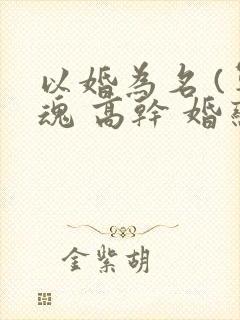 以婚為名 (
魂 高幹 婚
金紫胡